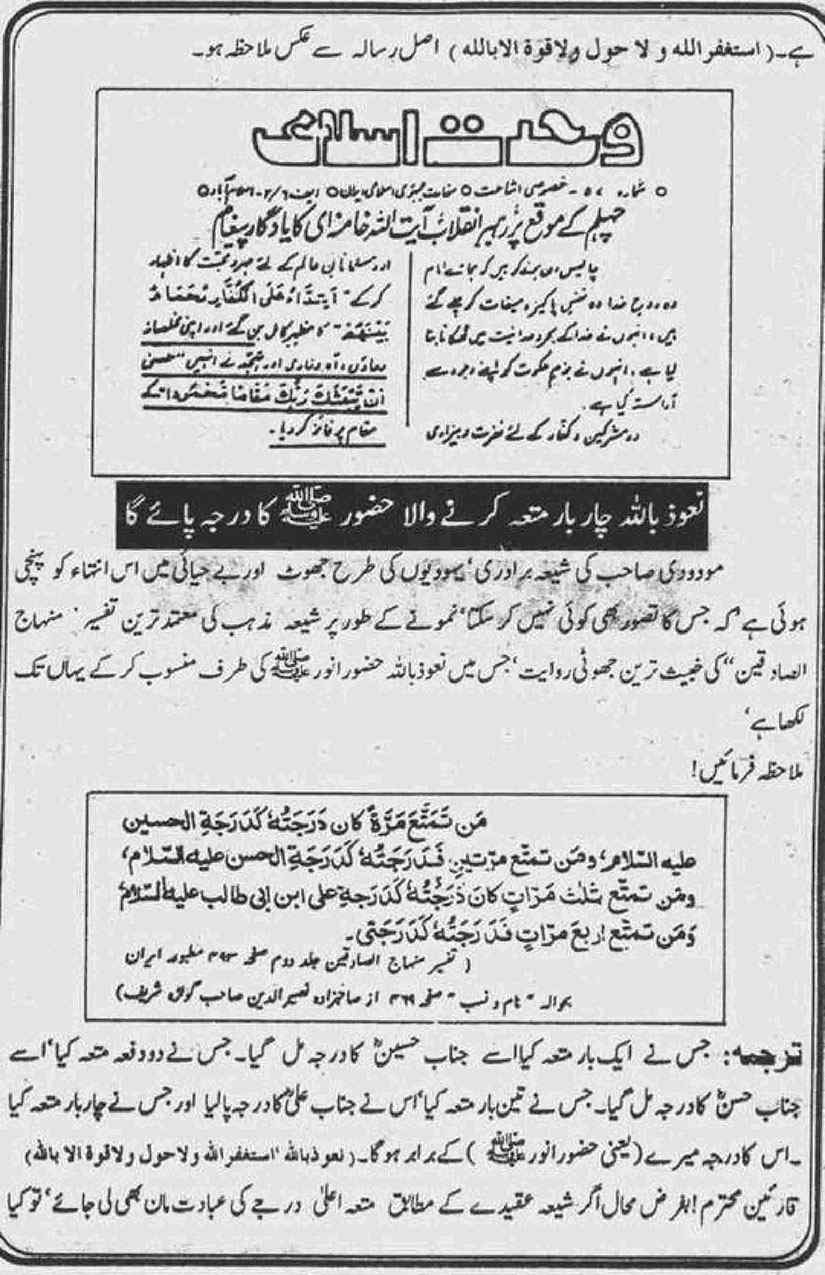 ہے۔(استغفر الله و لا حول ولا قوة الا بالله) اصل رسالہ سے عکس ملاحظہ ہو۔
وحدت اسلامی
○ شمارہ ۵۷ - خصوصی اشاعت ○ سفارت جمہوری اسلامی ایران ○ ایف ۶/۲- اسلام آباد ○
چہلم کے موقع پر رہبر انقلاب آیت اللہ خامنہ ای کا یادگار پیغام
چالیس دن
وہ
ہیں، انہوں نے خدا کے
لیا ہے، انہوں نے بزم ملکوت کو اپنے وجود سے
آراستہ کیا ہے۔
وہ مشرکین و کفار کے لئے نفرت و بیزاری
اور مسلمانان عالم کے لئے مہر و محبت کا اظہار
کر کے "اَشِدَّاءُ عَلَى الْكُفَّارِ رُحَمَاءُ
بَيْنَهُمْ" کا مظہر کامل بن گئے اور اپنی مخلصانہ
دعاؤں، آہ و زاری اور تہجد نے انہیں "عسیٰ
اَنْ يَبْعَثَكَ رَبُّكَ مَقَامًا مَّحْمُودًا" کے
مقام پر فائز کر دیا۔
نعوذ باللہ چار بار متعہ کرنے والا حضور ﷺ کا درجہ پائے گا
مودودی صاحب کی شیعہ برادری‘ یہودیوں کی طرح جھوٹ اور بے حیائی میں اس انتہاء کو پہنچی
ہوئی ہے‘ کہ جس کا تصور بھی کوئی نہیں کر سکتا‘ نمونے کے طور پر شیعہ مذہب کی معتمد ترین تفسیر ‘ منہاج
الصادقین“ کی خبیث ترین جھوٹی روایت‘ جس میں نعوذ باللہ حضور انور ﷺ کی طرف منسوب کر کے یہاں تک
لکھا ہے‘
ملاحظہ فرمائیں!
مَن تَمَتَّعَ مَرَّةً كان دَرَجَتُهٗ كَدَرَجَةِ الحسين
عليه السّلام، ومَن تمتّع مرّتينِ فَدَرَجَتُهٗ كَدَرَجَةِ الحسن عليه السّلام،
ومَن تمتّع ثلٰث مَرّاتٍ كانَ دَرَجَتُهٗ كَدَرجةِ على ابن ابى طالب عليه السّلام
وَمَن تمتّع اربعَ مرّاتٍ فَدَرَجَتُهٗ كَدَرَجَتى۔
(تفسیر منہاج الصادقین جلد دوم صفحہ ۴۹۳ مطبوعہ ایران
بحوالہ "نام و نسب" صفحہ ۴۶۹ از صاحبزادہ نصیر الدین صاحب گولڑہ شریف)
ترجمہ: جس نے ایک بار متعہ کیا اسے جناب حسینؓ کا درجہ مل گیا۔ جس نے دو دفعہ متعہ کیا‘ اسے
جناب حسنؓ کا درجہ مل گیا۔ جس نے تین بار متعہ کیا‘ اس نے جناب علیؓ کا درجہ پا لیا اور جس نے چار بار متعہ کیا
۔اس کا درجہ میرے (یعنی حضور انور ﷺ) کے برابر ہو گا۔ (نعوذ بالله ‘استغفر الله ولا حول ولا قوة الا بالله)
قارئین محترم! بفرض محال اگر شیعہ عقیدے کے مطابق متعہ اعلیٰ درجے کی عبادت مان بھی لی جائے‘ تو کیا